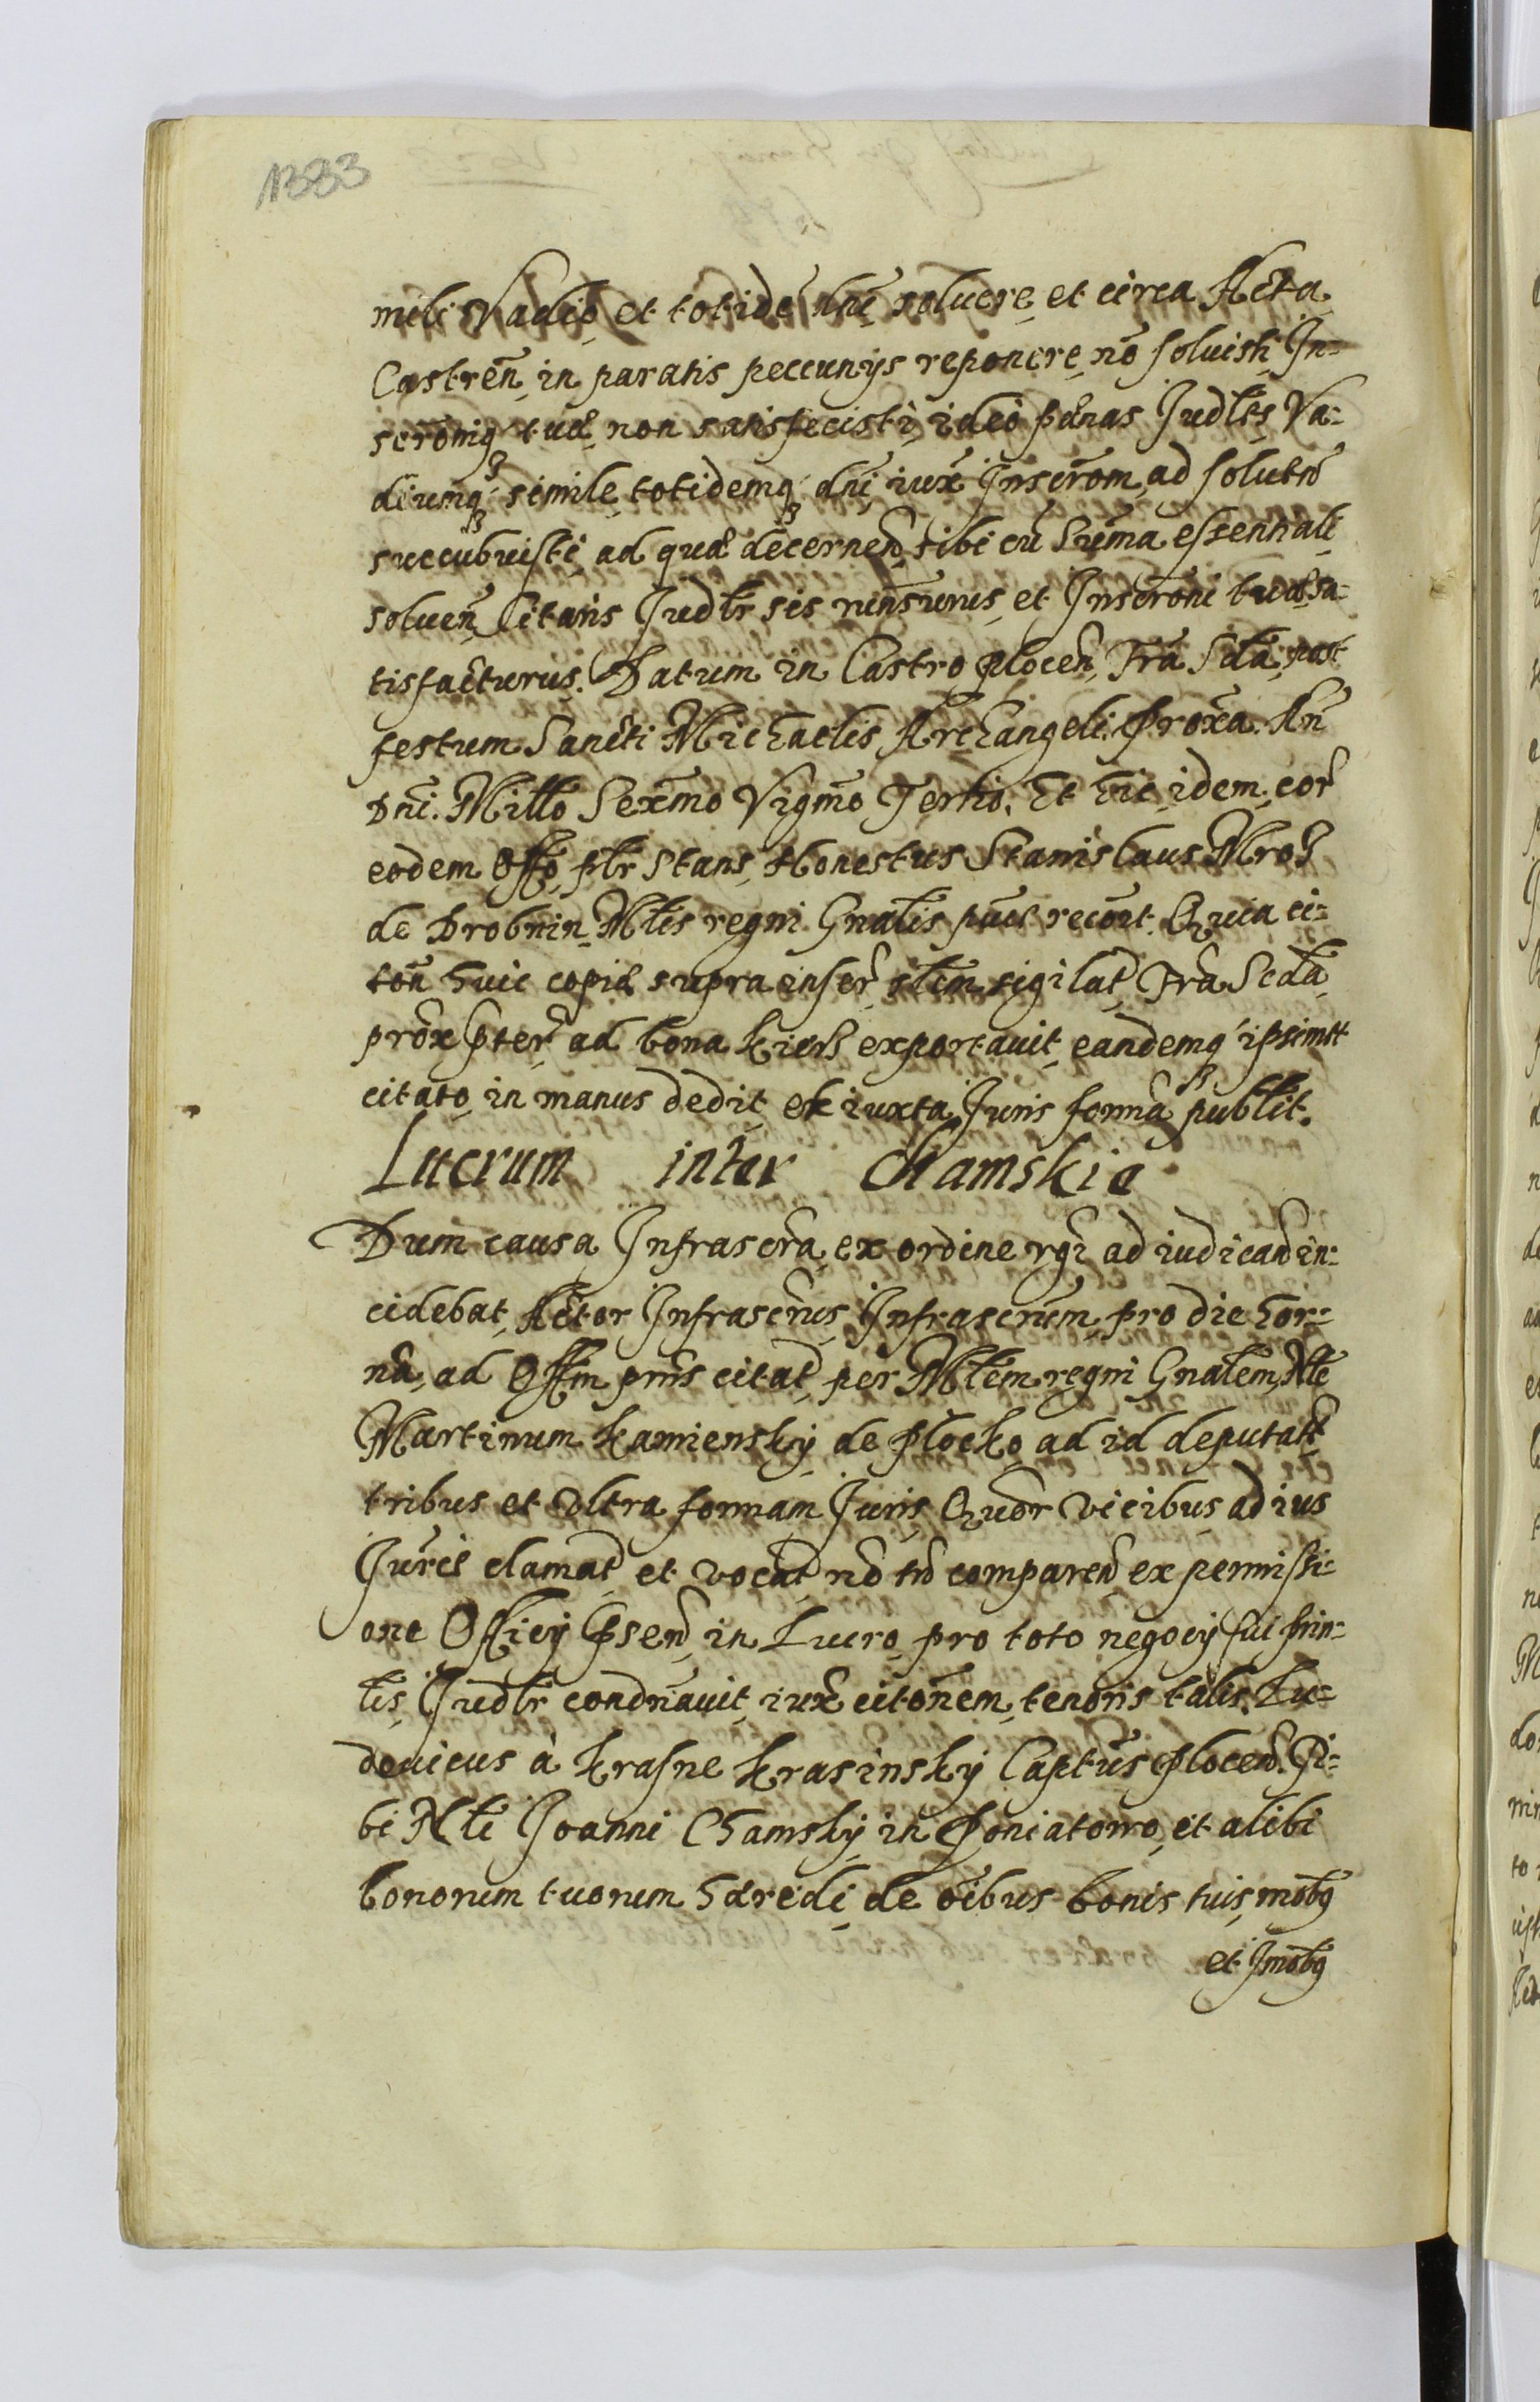 1383
mili Vadio et totidē dni soluere et circa Acta
Castren̄ in paratis peccunijs reponere nō soluisti Jn=
scrōniq; tuæ non satisfecisti ideo pænas Judles Va=
diumq; simile totidemq; dni iux̄ Jnscrōm ad solutō
succubuisti ad quæ decernen̄ tibi cū Sum̄a essentiali
soluen̄ Citaris Judlr sis rūnsurus et Jnscrōni tuæ sa=
tisfacturus. Datum in Castro Plocen̄ Fra Scda post
festum Sancti Michaelis Archangeli Prox̄a. An̄
Dni. Millo Sex̄mo Vigm̄o Tertio. Et hic idem cor̄
eodem Offō plr stans Honestus Stanislaus Mroz̄
de Drobnin Mlis regni Gnalis pūs recōt. Quia ci=
tōn huic copiæ supra inser̄ slem sigilat̄ Fra Scda
prox̄ pter̄ ad bona Kierz exportauit eandemq; ipsimet
citato in manus dedit et iuxta Juris formā publīt.
Lucrum inter Chamskie
Dum causa Jnfrascrā ex ordine rgri ad iudicand̄ in=
cidebat Actor Jnfrascrūs Jnfrascrūm pro die hor=
nā ad Offm pn̄s citat̄ per Mlem regni Gnalem Nle
Martinum Kamiensky de Plocko ad id deputat̄
tribus et Vltra formam Juris Quor̄ vicibus ad ius
Juris clamat̄ et vocat̄ nō tn̄ comparen̄ ex permissi=
one Officy Psen̄ in Lucro pro toto negocy sui prin=
lis Judlr condnauit iux̄ citōnem tenoris talis. Lu=
douicus à Krasne Krasinsky Captūs Plocen̄. Ti=
bi Nli Joanni Chamsky in Poniatowo et alibi
bonorum tuorum hæredi de oībus bonis tuis mōbq
et Jmōbq